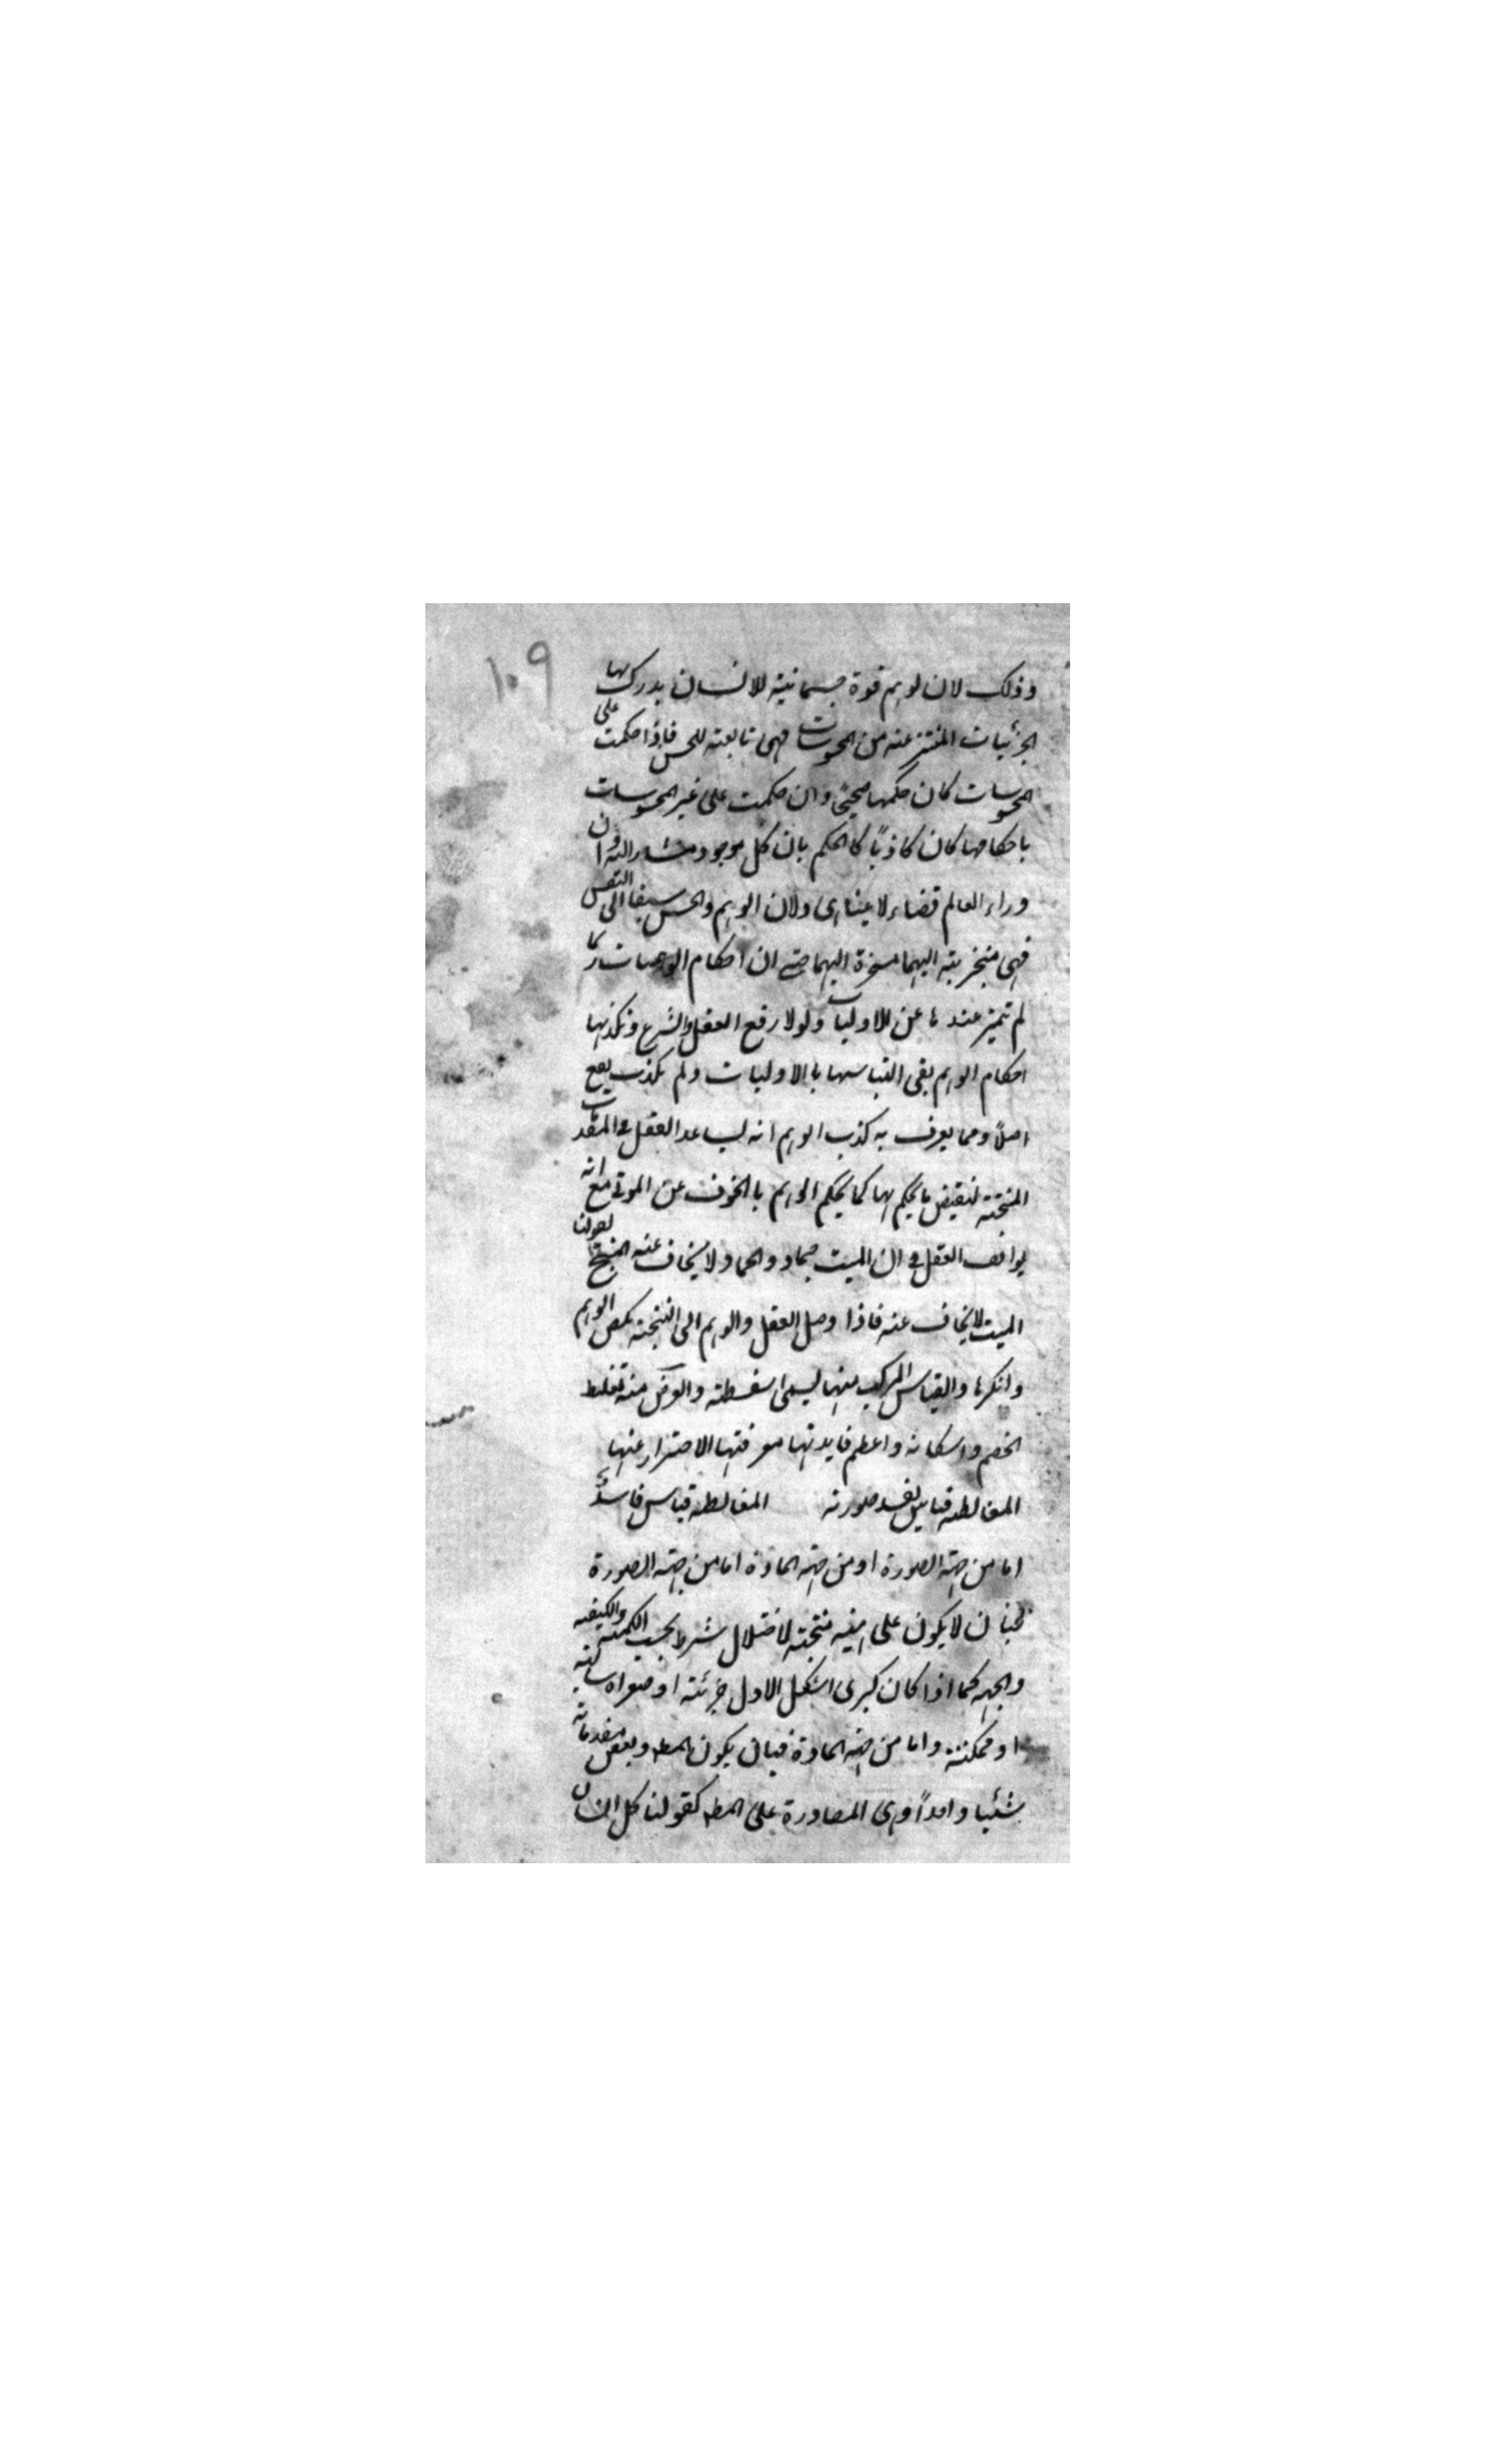 ١٠٩
وذلك لان لوهم قوة جسمانية للانسان يدرك بها
الجزئيات المنتزعته من المحسوسات فهى تابعته للحس فاذا حكمت على
المحسوسات كان حكمها صحيحًا وان حكمت على غير المحسوسات
باحكامها كان كاذبًا كالحكم بان كل موجود مشار اليه وان
وراء العالم فضاء لا يتناهى ولان الوهم والحس سبقا الى النفس
فهى منجذبته اليهما مسخرة اليهما حتى ان احكام الوهميات ربما
لم تتميز عندها عن الاوليات ولولا رفع العقل والشرع وتكذيبها
احكام الوهم بقى التباسها بالاوليات ولم يكذب يقع
اصلاً ومما يعرف به كذب الوهم انه يساعد العقل فى المقدمات
المنتجته لنقيض ما يحكم بها كما يحكم الوهم بالخوف عن الموتى مع انه
يوافق العقل فى ان الميت جماد والجماد لا يخاف عنه المنتج لقولنا
الميت لا يخاف عنه فاذا وصل العقل والوهم الى النتيجته نكص الوهم
وانكرها والقياس المركب منها يسمى سفسطته والغرض منه تغليط
الخصم واسكاته واعظم فايدتها معرفتها الاحتراز عنها
المغالطته قياس يفسد صورته المغالطه قياس فاسدٌ
اما من جهته الصورة او من جهته المادة اما من جهته الصورة
فبان لا يكون على هيئه منتجته لاختلال شرط بحسب الكميته والكيفيه
والجهه كما اذا كان كبرى الشكل الاول جزئته او صغراه سالبته
او ممكنته واما من جهته المادة فبان يكون المط وبعض مقدماته
شئيا واحداً وهى المصادرة على المط كقولنا كل انسان